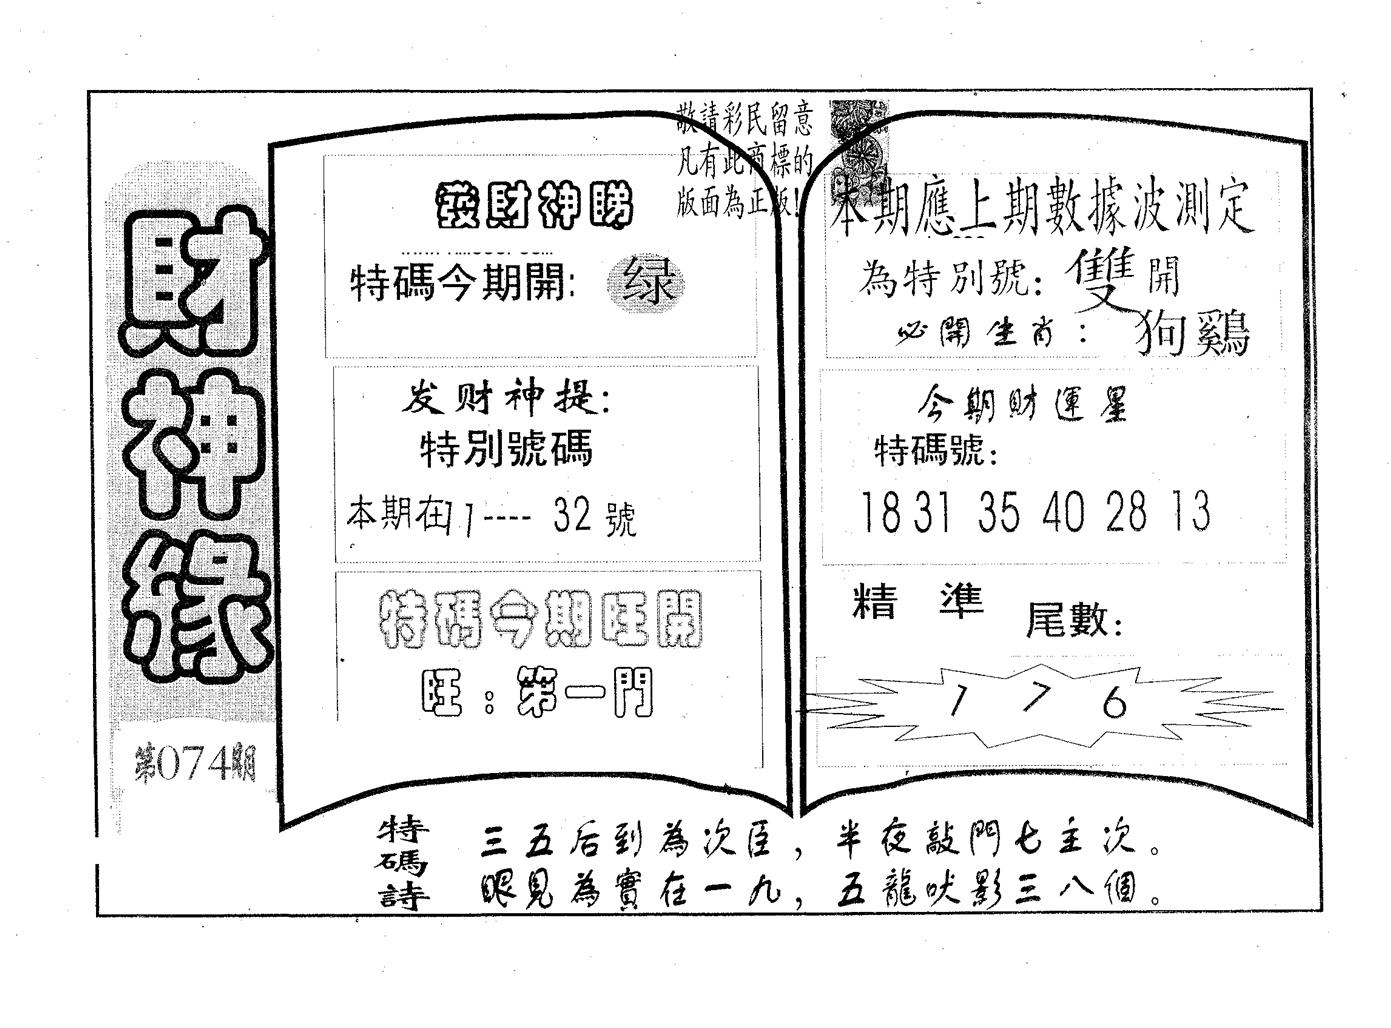 財神緣
第074期
敬請彩民留意
凡有此商標的
版面為正版!
發財神睇
特碼今期開:
绿
发财神提:
特別號碼
本期在11---- 32號
特碼今期旺開
旺:第一門
本期應上期數據波測定
為特別號:雙開
必開生肖:狗鷄
今期財運星
特碼號:
18 31 35 40 28 13
精準 尾數:
1 7 6
特碼詩
三五后到為次臣,半夜敲門七主次。
眼見為實在一九,五龍吠影三八個。